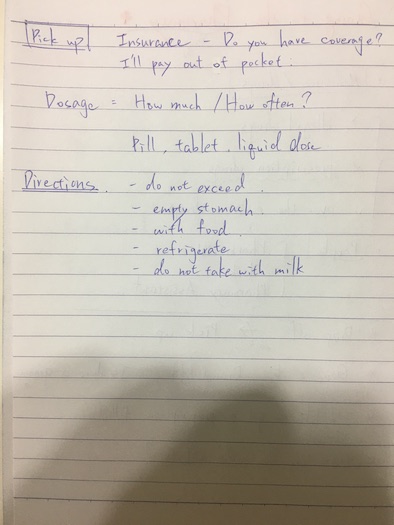 Pick up Insurance - Do you have coverage?
I'll pay out of pocket.
Dosage = How much / How often?
Pill, tablet, liquid dose
Directions. - do not exceed.
- empty stomach.
- with food.
- refrigerate
- do not take with milk